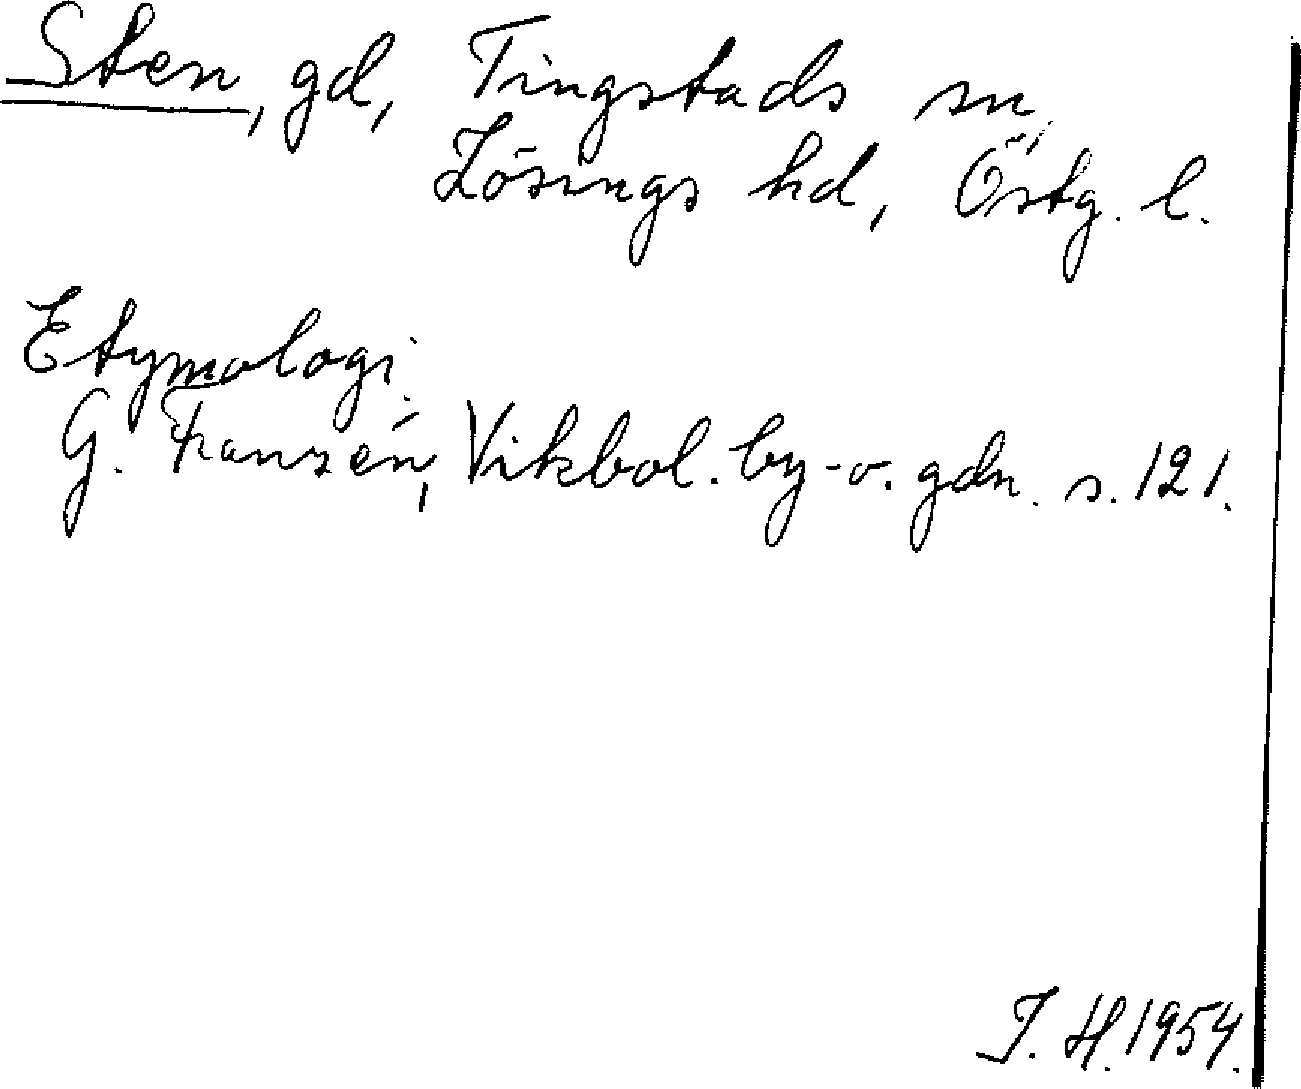 Sten, gd, Tingstads sn,
Lösings hd, Östg. l.
Etymologi.
G. Franzén, Vikbol. by- o. gdn. s. 121.
I. H. 1954.